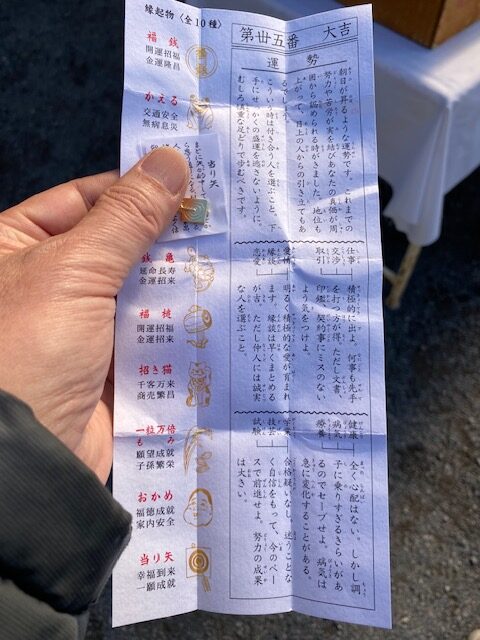 縁起物〈全10種〉
福銭
開運招福
金運隆昌
かえる
交通安全
無病息災
当り矢
銭亀
延命長寿
金運招来
福槌
開運招福
金運招来
招き猫
千客万来
商売繁昌
一粒万倍
もみ
願望成就
子孫繁栄
おかめ
福徳成就
家内安全
当り矢
幸福到来
一願成就
第廿五番 大吉
運勢
朝日が昇るような運勢です。これまでの
努力や苦労が実を結びあなたの真価が周
囲から認められる時がきました。地位も
上がって、目上の人からの引き立てもあ
るでしょう。
こういう時は付き合う人を選ぶこと。下
手にせっかくの盛運を逃さないように、
むしろ慎重な足どりで歩むべきです。
仕事
交渉
取引
積極的に出よ。何事も先手
を打つ方が得。ただし文書、
印鑑、契約事にミスのない
よう気をつけよ。
縁談
明るく積極的な愛が育まれ
ます。縁談は早くまとめる
が吉。ただし仲人には誠実
な人を選ぶこと。
健康
病気
療養
全く心配はない。しかし調
子に乗りすぎるきらいがあ
るのでセーブせよ。病気は
急に変化することがある。
学業
技芸
試験
合格疑いなし。迷うことな
く自信をもって、今のペー
スで前進せよ。努力の成果
は大きい。